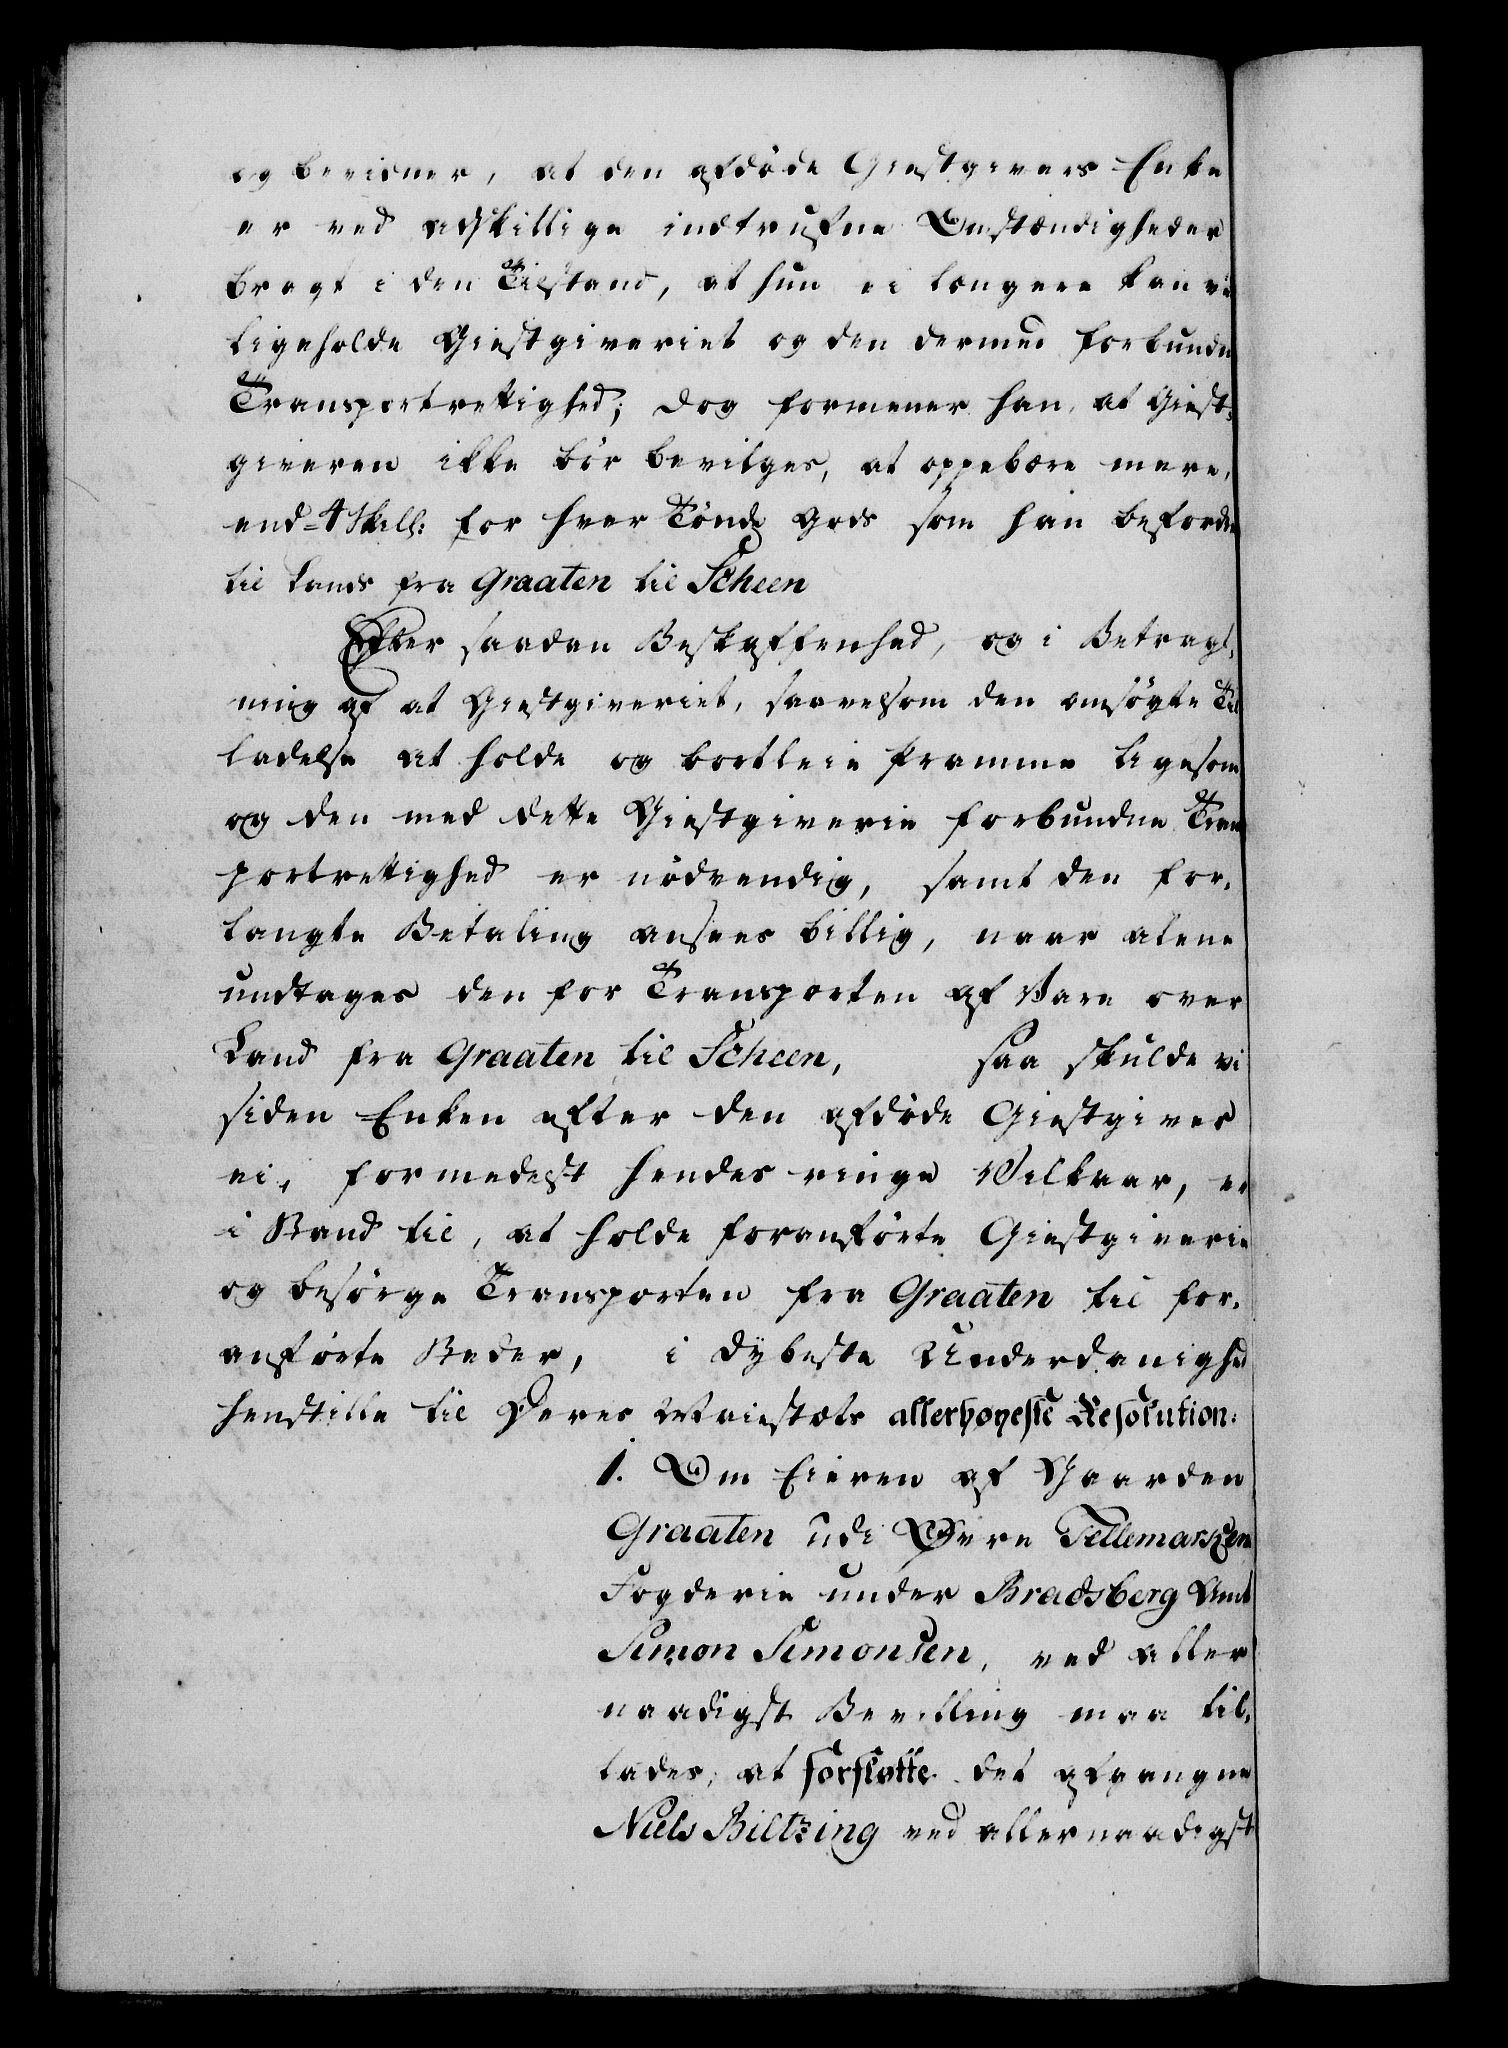 og beviser, at den afdöde Giestgivers Enke
er ved adskillige indtrufne Omstændigheder
bragt i den Tilstand, at hun ei længere kan ved
ligeholde Giestgiveriet og den dermed forbundne
Transportrettighed; dog formener han, at Giest-
giveren ikke bör bevilges, at oppebære mere,
end 4 skill: for hver Tönde Gods som han befordrer
til Lands fra Graaten til Scheen
Efter saadan Beskaffenhed, og i Betragt-
ning af at Giestgiveriet, saavelsom den ansögte Til
ladelse at holde og bortleie Pramme ligesom
og den med dette Giestgiverie forbundne Trans
portrettighed er nödvendig, samt den for-
langte Betaling ansees billig, naar alene
undtages den for Transporten af Vare over
Land fra Graaten til Scheen, saa skulde vi
siden Enken efter den afdöde Giestgiver
ei, formedelst hendes ringe Vilkaar, er
i Stand til, at holde foranförte Giestgiverie
og besörge Transporten fra Graaten til for-
anförte Steder, i dybeste Underdanighed
henstille til Deres Maiestæts allerhöyeste Resolution:
1. Om Eieren af Gaarden
Graaten udi Øvre Tellemarkens
Fogderie under Bradsberg Amt
Simon Simonsen, ved aller
naadigst Bevilling maa til-
lades, at forsætte det afgangne
Niels Biltzing ved allernaadigst